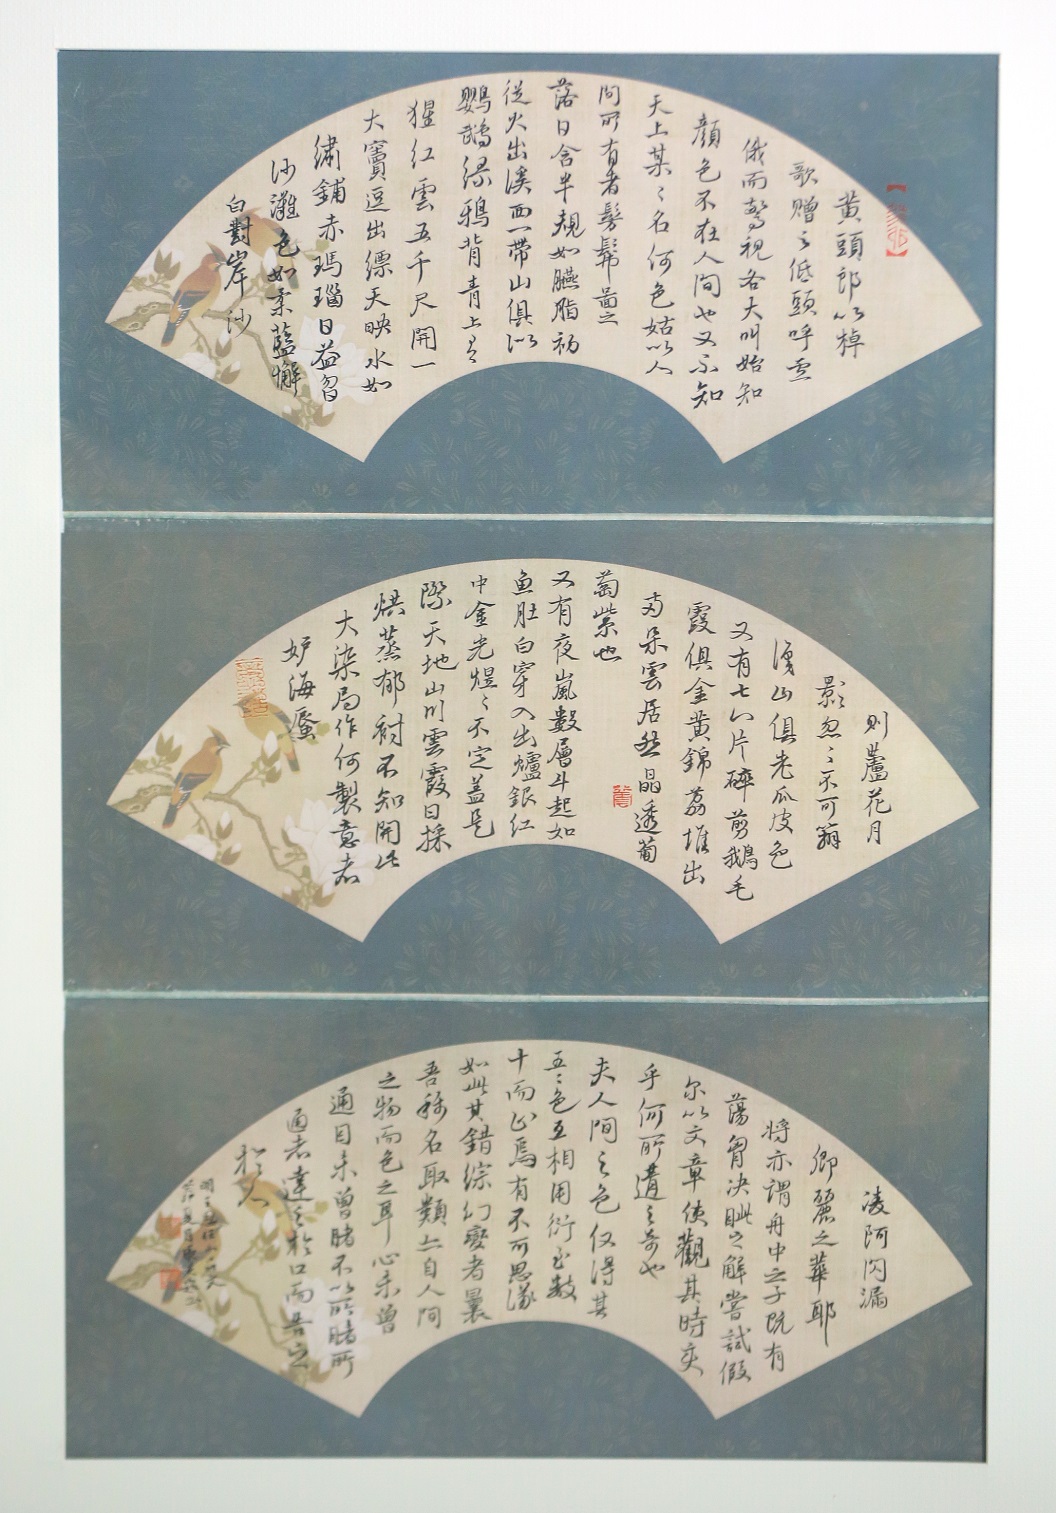 黃頭郎以棹
歌贈之低頭呼盧
俄而驚視各大叫始知
顏色不在人間也又不知
天上某某名何色姑以人
間所有者髣髴圖之
落日含半規如臙脂初
從火出溪西一帶山俱似
鸚鵡綠鴉背青上有
猩紅雲五千尺開一
大竇逗出縹天映水如
繡鋪赤瑪瑙日益曶
沙灘色如柔藍懈
白對岸沙
則蘆花月
影忽忽不可辨
復山俱老瓜皮色
又有七八片碎剪鵝毛
霞俱金黃錦荔堆出
兩朵雲居然晶透葡
萄紫也
又有夜嵐數層斗起如
魚肚白穿入出爐銀紅
中金光煜煜不定蓋是
際天地山川雲霞日採
烘蒸郁襯不知開此
大染局作何製意者
妒海蜃
凌阿閃漏
卿麗之華耶
將亦謂舟中之子既有
蕩胸決眦之解嘗試假
尔以文章使觀其時變
乎何所遘之奇也
夫人間之色仅得其
五五色互相用衍至數
十而止焉有不可思議
如此其錯綜幻變者曩
吾稱名取類亦自人間
之物而色之耳心未曾
通目未曾睹不以所睹所
通者達之於口而告之
於人